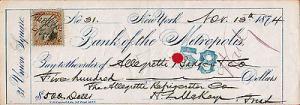 No. 31. New-York Nov. 13th 1874
Bank of the Metropolis,
31 Union Square.
Pay to the order of Allegretti & Co
Five hundred Dollars
58
The Allegretti Refrigerator Co
$500 Dolls
Prest